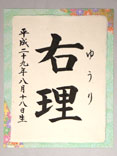 右理
ゆうり
平成二十九年八月十八日生